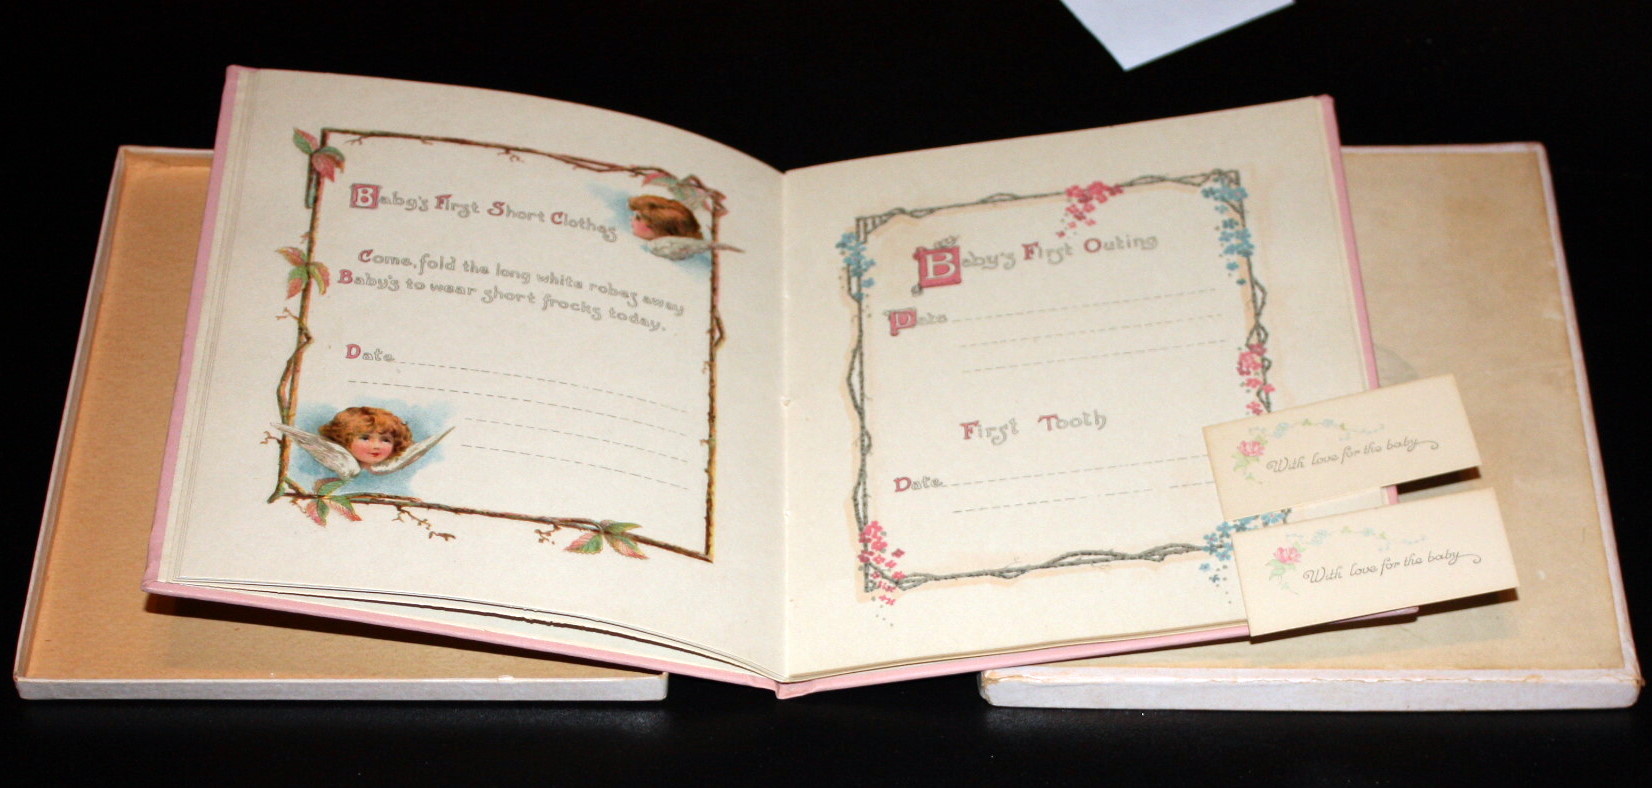 Baby's First Short Clothes
Come, fold the long white robes away
Baby's to wear short frocks today.
Date
Baby's First Outing
Date
First Tooth
Date
With love for the baby
With love for the baby